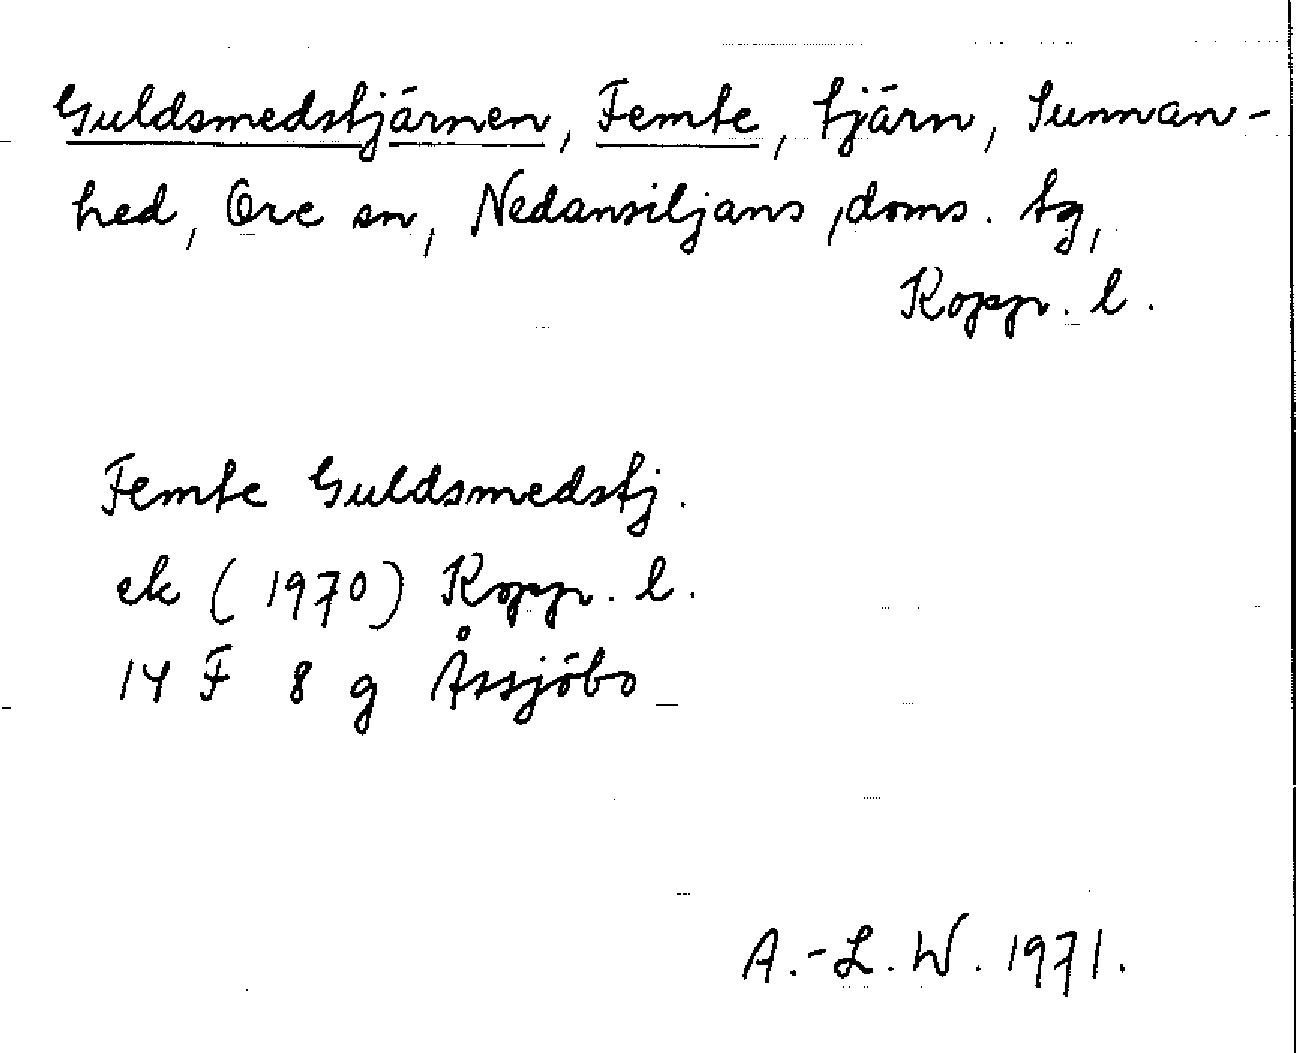 Guldsmedstjärnen, Femte, tjärn, Sunnan-
hed, Ore sn, Nedansiljans doms. tg,
Kopp. l.
Femte Guldsmedstj.
ek (1970) Kopp. l.
14 F 8 g Åssjöbo
A.-L. W. 1971.